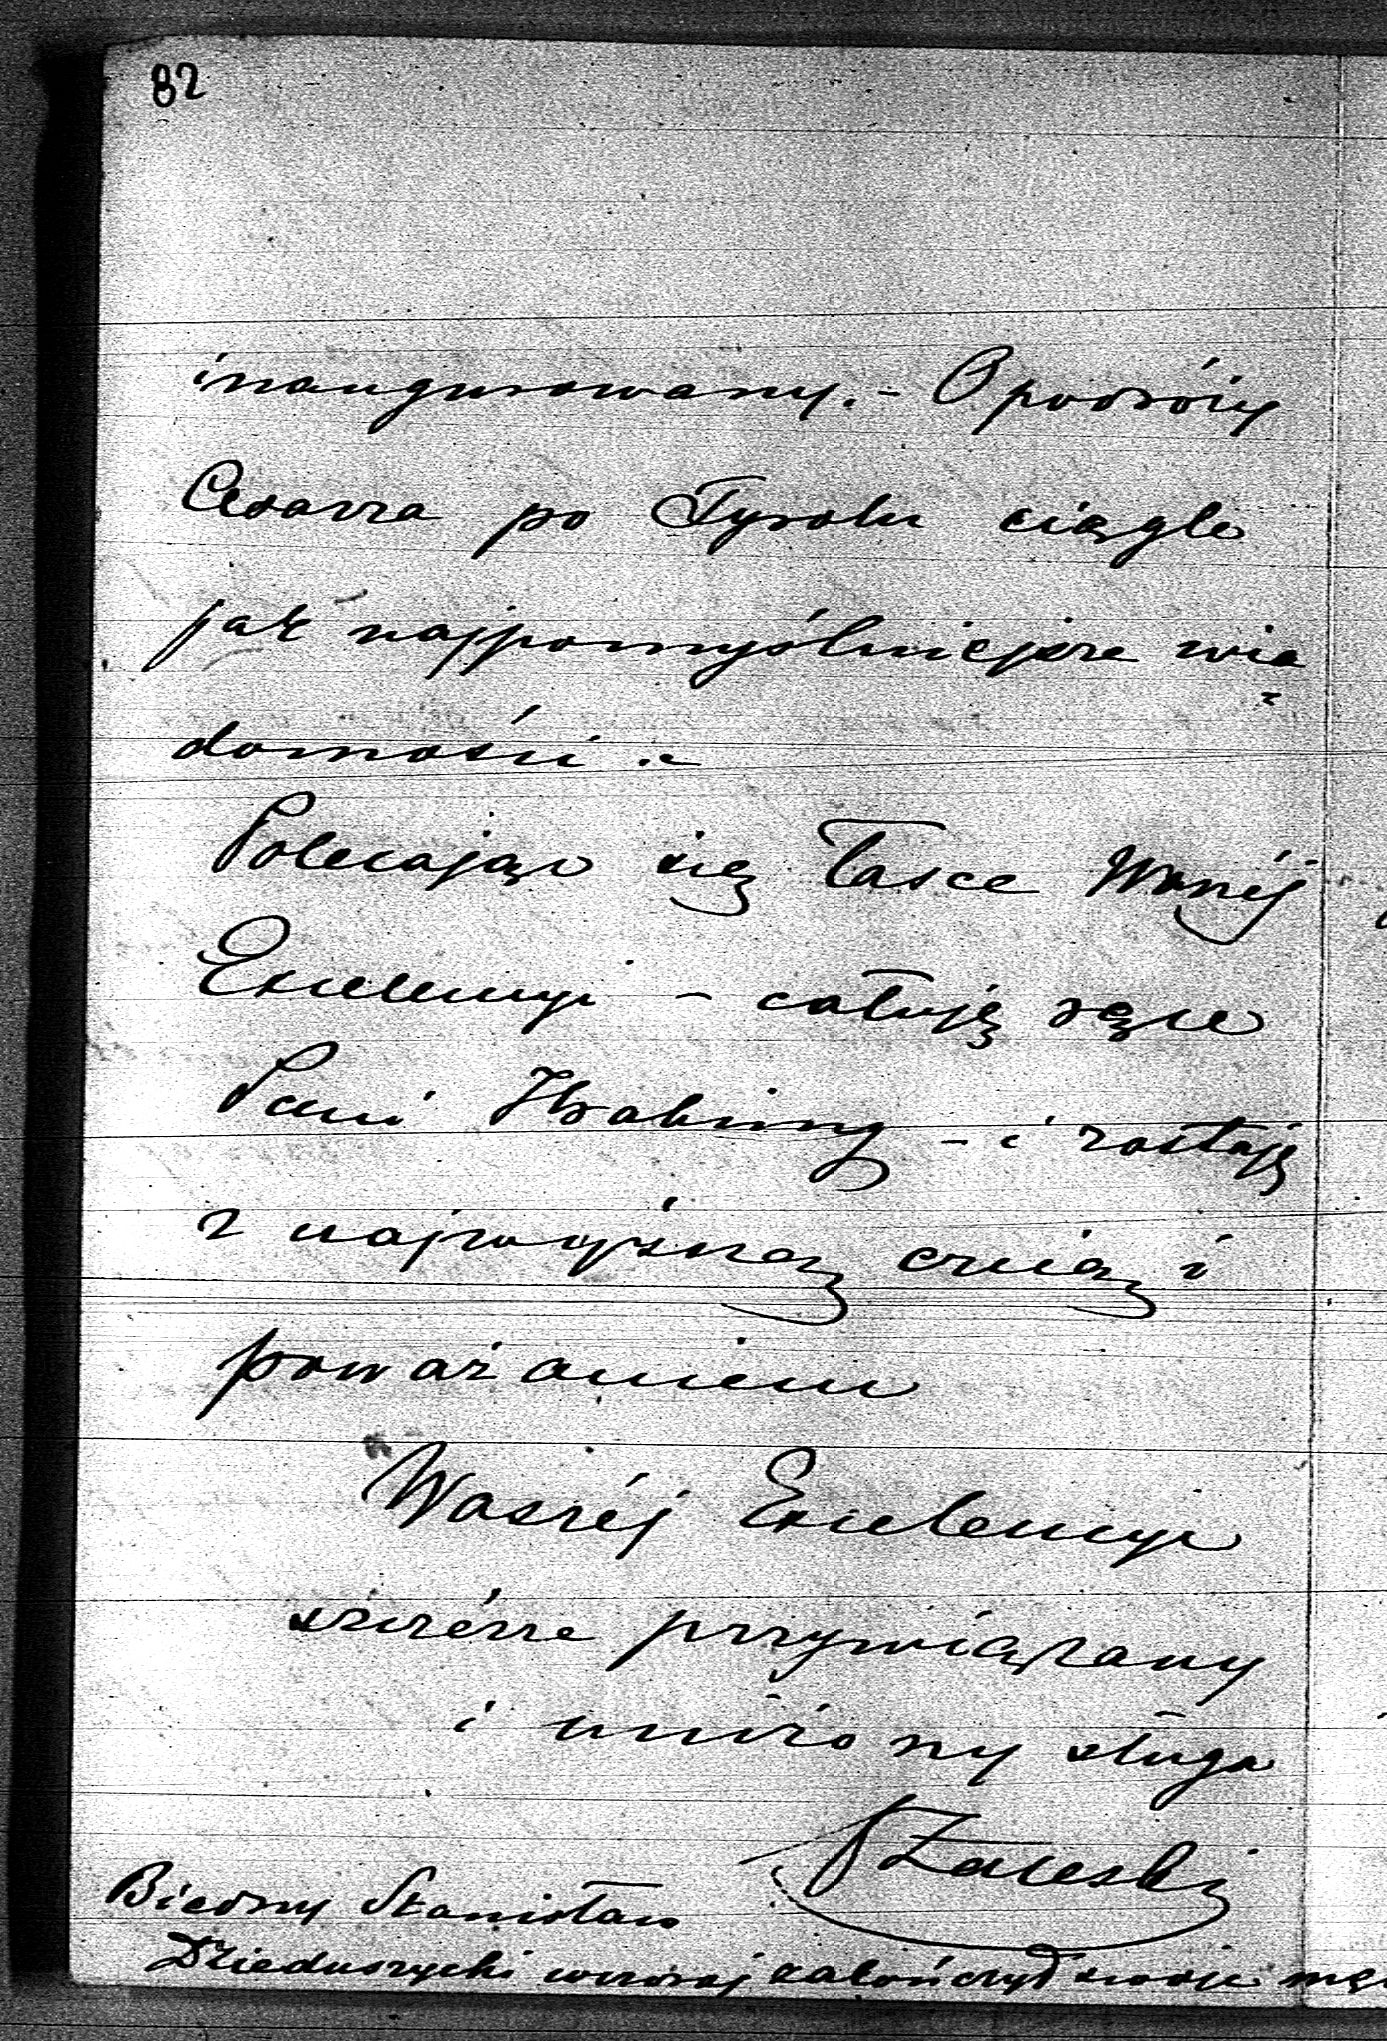 82
inaugurowany. - O podróży
Cesarza po Tyrolu ciągle
jak najpomyślniejsze wia
domości. -
Polecając się łasce Waszéj
Excelencyi - całuję ręce
Pani Hrabiny - i zostaję
z najwyższą czcią i
poważaniem
Waszéj Excelencyi
szczérze przywiązany
i uniżony sługa
Zaleski
Biedny Stanisław
Dzieduszycki wczoraj zakończył swoje